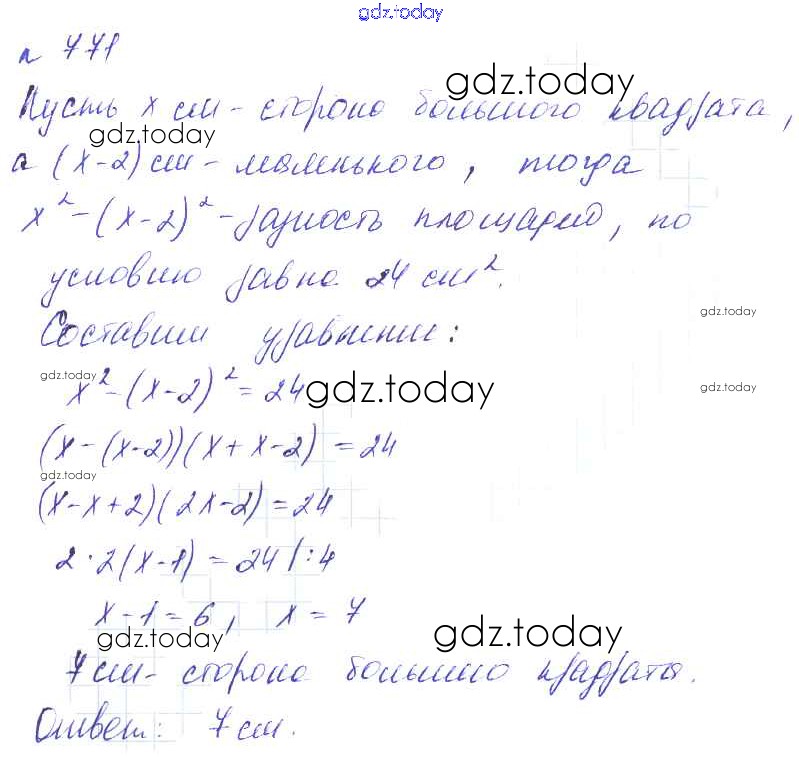 gdz.today
№ 771
gdz.today
Пусть x см - сторона большого квадрата,
gdz.today
а (x-2) см - маленького, тогда
x² - (x-2)² - разность площадей, по
условию равна 24 см².
gdz.today
Составим уравнение:
gdz.today
x² - (x-2)² = 24
gdz.today
gdz.today
(x - (x-2))(x + x - 2) = 24
gdz.today
(x - x + 2)(2x - 2) = 24
2 · 2(x-1) = 24 | : 4
x - 1 = 6, x = 7
gdz.today
gdz.today
7 см - сторона большого квадрата.
Ответ: 7 см.